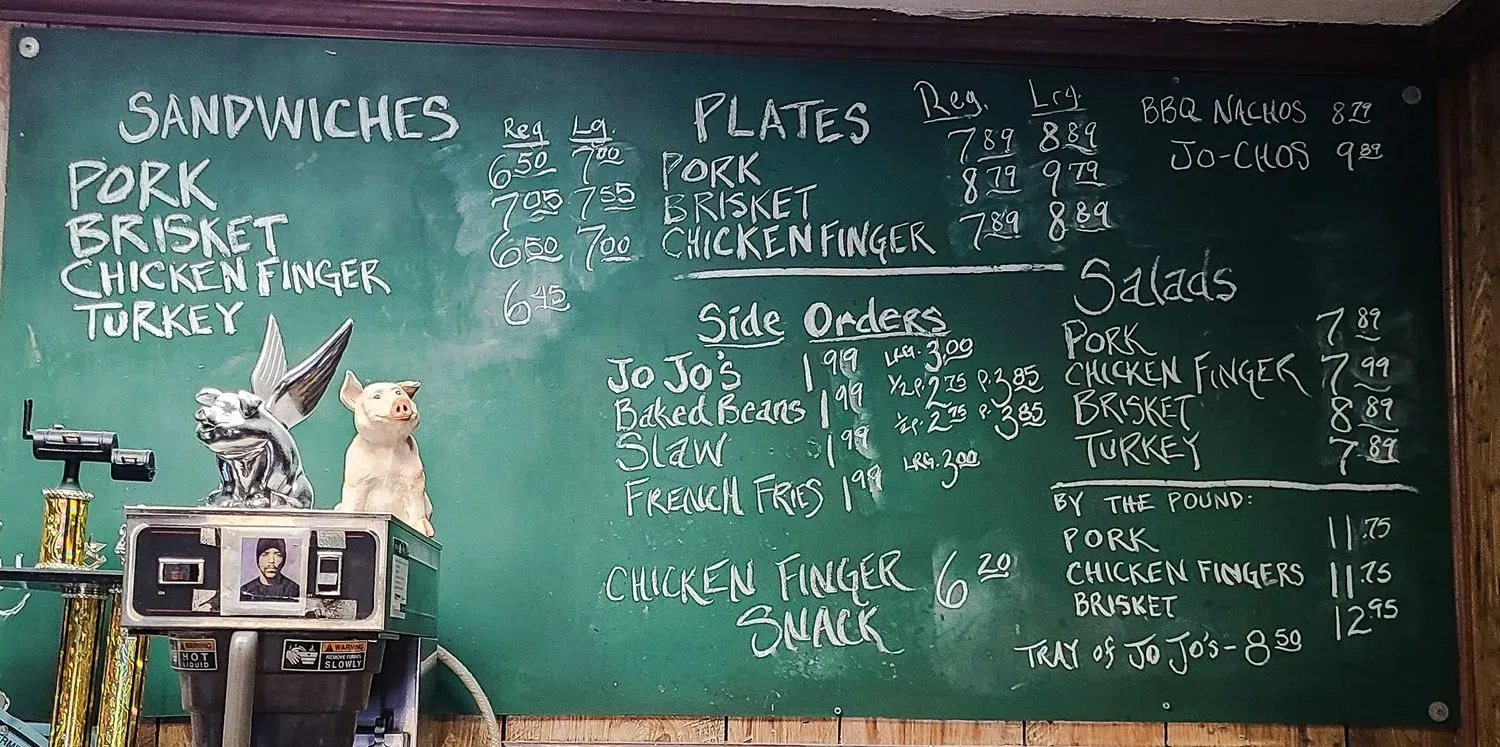 SANDWICHES Reg Lg.
PORK 6.50 7.00
BRISKET 7.05 7.55
CHICKEN FINGER 6.50 7.00
TURKEY 6.45
PLATES Reg. Lrg.
PORK 7.89 8.89
BRISKET 8.79 9.79
CHICKEN FINGER 7.89 8.89
BBQ NACHOS 8.79
JO-CHOS 9.89
Side Orders
JO JO'S 1.99 LRG. 3.00
Baked Beans 1.99 1/2 P. 2.75 P. 3.85
SLAW 1.99 1/2 P. 2.75 P. 3.85
FRENCH FRIES 1.99 LRG. 3.00
CHICKEN FINGER 6.20
SNACK
Salads
PORK 7.89
CHICKEN FINGER 7.99
BRISKET 8.89
TURKEY 7.89
BY THE POUND:
PORK 11.75
CHICKEN FINGERS 11.75
BRISKET 12.95
TRAY of JO JO'S - 8.50
WARNING
HOT
LIQUID
WARNING
REMOVE FUNNEL
SLOWLY